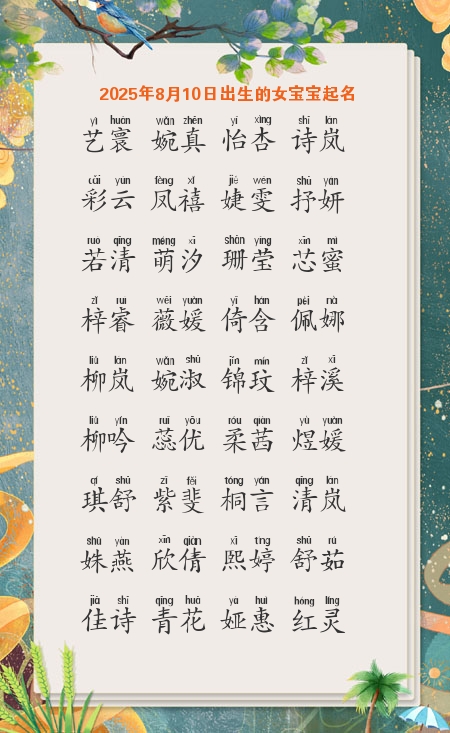 2025年8月10日出生的女宝宝起名
yì huán wǎn zhēn yí xìng shī lán
艺寰 婉真 怡杏 诗岚
cǎi yún fèng xǐ jié wén shū yán
彩云 凤禧 婕雯 抒妍
ruò qīng méng xī shān yíng xīn mì
若清 萌汐 珊莹 芯蜜
zǐ ruì wēi yuàn yǐ hán pèi nà
梓睿 薇媛 倚含 佩娜
liǔ lán wǎn shū jǐn mín zǐ xī
柳岚 婉淑 锦玟 梓溪
liǔ yín ruǐ yōu róu qiàn yù yuàn
柳吟 蕊优 柔茜 煜媛
qí shū zǐ fěi tóng yán qīng lán
琪舒 紫斐 桐言 清岚
shū yàn xīn qiàn xī tíng shū rú
姝燕 欣倩 熙婷 舒茹
jiā shī qīng huā yà huì hóng líng
佳诗 青花 娅惠 红灵